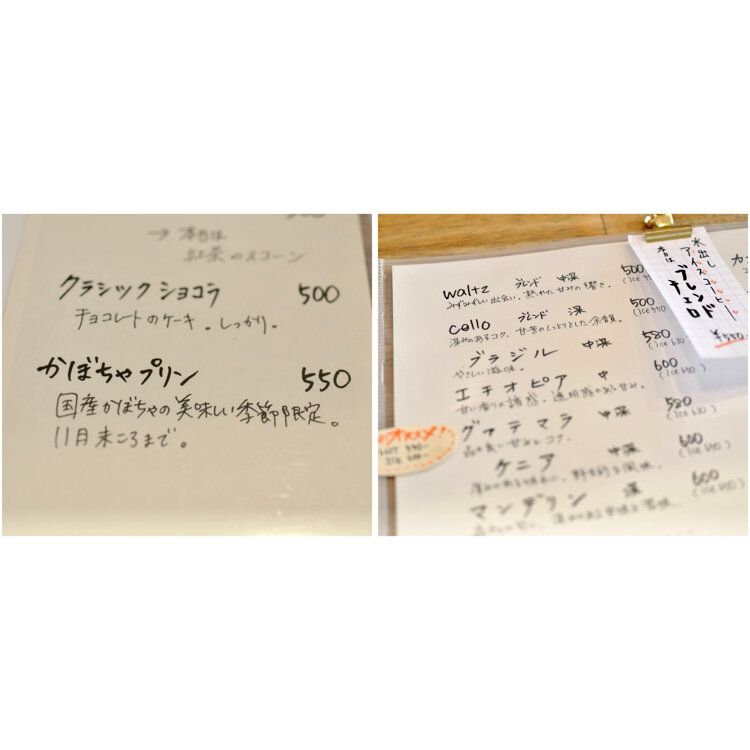 → 本日は
紅茶のスコーン
クラシックショコラ 500
チョコレートのケーキ。しっかり。
かぼちゃプリン 550
国産かぼちゃの美味しい季節限定。
11月末ころまで。
waltz ブレンド 中深 500
みずみずしい出会い。熟れた甘みの響き。 (ice 550
cello ブレンド 深 500
深みのあるコク。甘苦のしっとりとした余韻。 (ice 550
ブラジル 中深 580
やさしい滋味。 (ice 630
エチオピア 中 600
甘い香りの誘惑。透明感のある甘み。 (ice 650)
グァテマラ 中深 580
品の良い甘みとコク。 (ice 630)
ケニア 中深 600
(ice 650)
マンデリン 深 600
(ice 650)
オススメ!
水出し
アイスコーヒー
本日は
ブレンド
ナェロド
¥550